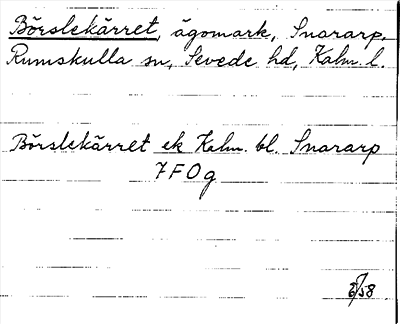 Börslekärret, ägomark, Snararp.
Rumskulla sn, Sevede hd, Kalm. l.
Börslekärret ek Kalm. bl. Snararp
7F0g